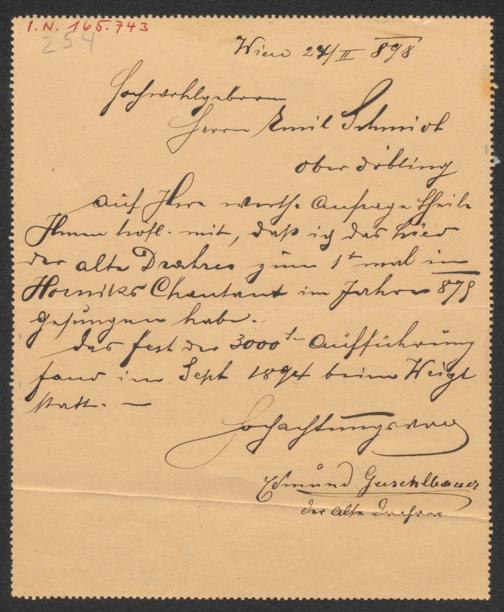 I.N. 165.743
254
Wien 24/II 898
Hochwohlgeboren
Herrn Emil Schmidt
Oberdöbling
Auf Ihre werthe Anfrage theile
Ihnen höfl. mit, daß ich das Lied
der alte Drahrer zum 1t mal in
Horniks Chantant im Jahre 879
gesungen habe.
Das Fest der 3000t Aufführung
fand im Sept 1894 beim Weigl
statt. —
Hochachtungsvoll
Edmund Guschlbauer
der alte Drahrer